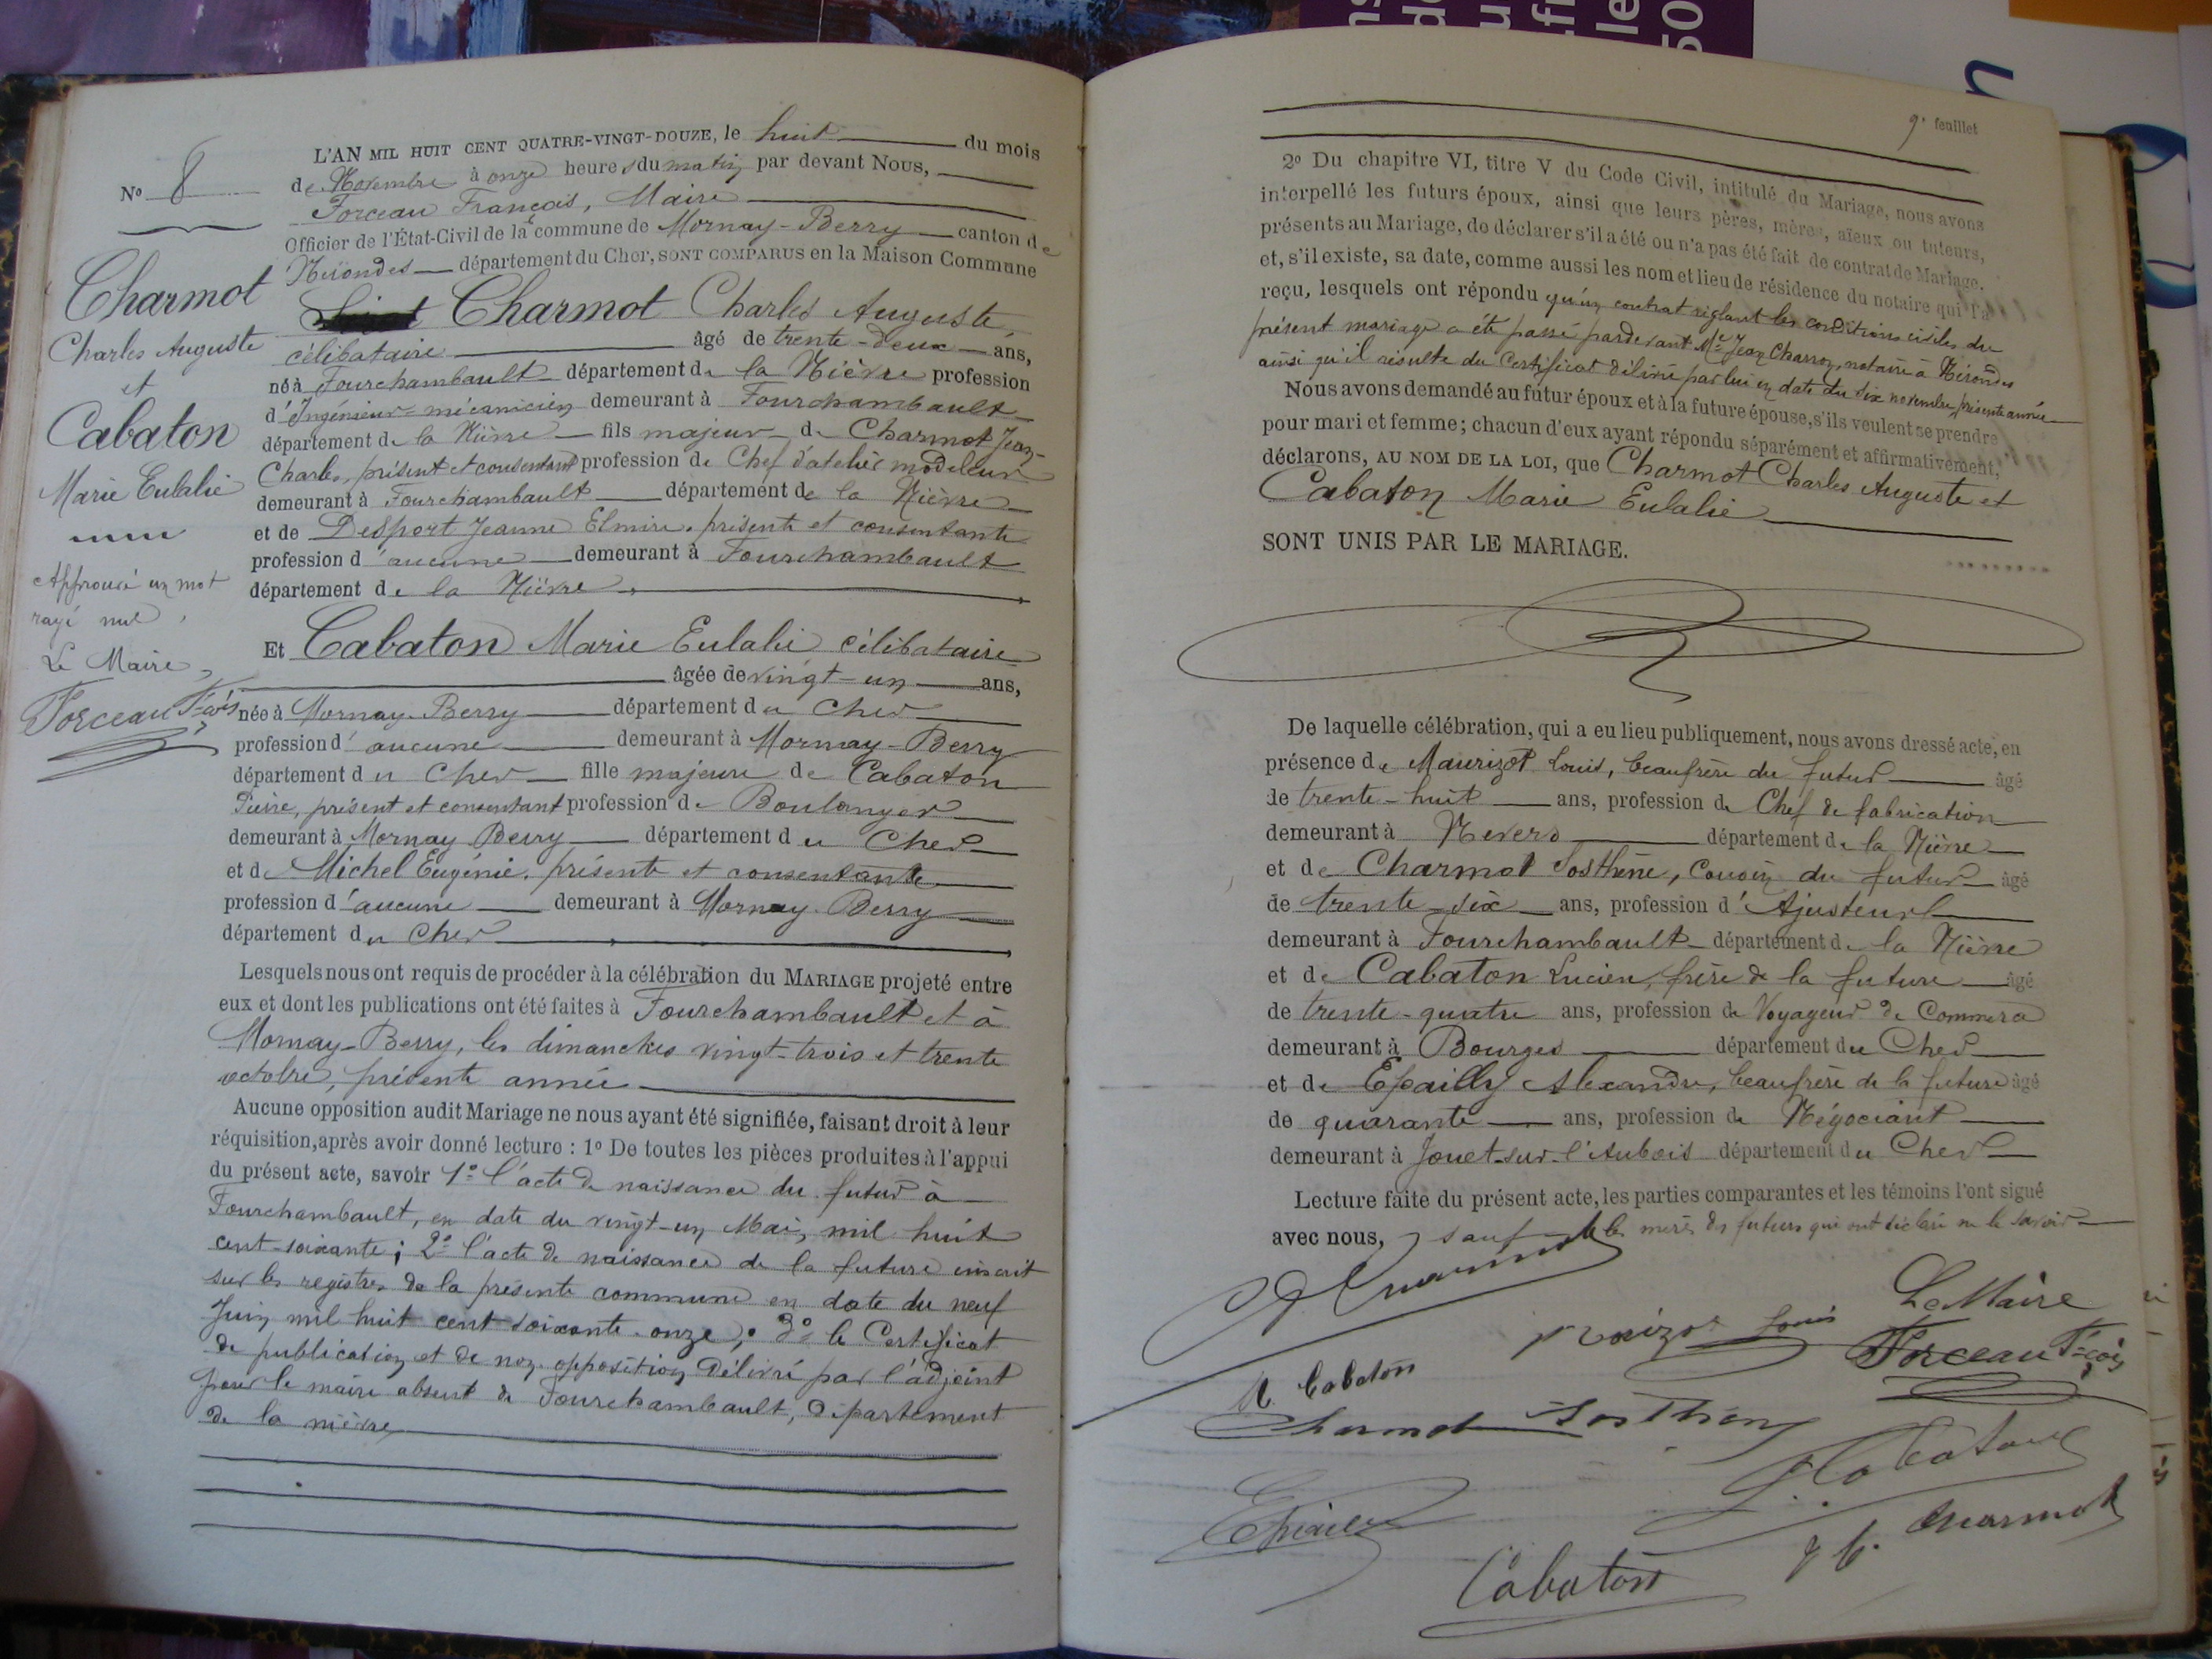 N° 8
Charmot
Charles Auguste
et
Cabaton
Marie Eulalie
Approuvé un mot
rayé nul,
Le Maire,
Forceau F=çois
L'AN MIL HUIT CENT QUATRE-VINGT-DOUZE, le huit du mois
de Novembre à onze heures du matin par devant Nous,
Forceau François, Maire
Officier de l'État-Civil de la commune de Mornay-Berry canton de
Nérondes département du Cher, SONT COMPARUS en la Maison Commune
Charmot Charles Auguste,
célibataire âgé de trente-deux ans,
né à Fourchambault département de la Nièvre profession
d'Ingénieur=mécanicien demeurant à Fourchambault
département de la Nièvre fils majeur de Charmot Jean-
Charles, présent et consentant profession de Chef d'atelier modeleur
demeurant à Fourchambault département de la Nièvre
et de Desport Jeanne Elmire, présente et consentante
profession d'aucune demeurant à Fourchambault
département de la Nièvre,
Et Cabaton Marie Eulalie célibataire
âgée de vingt-un ans,
née à Mornay-Berry département du Cher
profession d'aucune demeurant à Mornay-Berry
département du Cher fille majeure de Cabaton
Pierre, présent et consentant profession de Boulanger
demeurant à Mornay Berry département du Cher
et de Michel Eugénie, présente et consentante
profession d'aucune demeurant à Mornay-Berry
département du Cher
Lesquels nous ont requis de procéder à la célébration du MARIAGE projeté entre
eux et dont les publications ont été faites à Fourchambault et à
Mornay-Berry, les dimanches vingt-trois et trente
octobre, présente année
Aucune opposition audit Mariage ne nous ayant été signifiée, faisant droit à leur
réquisition, après avoir donné lecture : 1° De toutes les pièces produites à l'appui
du présent acte, savoir 1° l'acte de naissance du futur à
Fourchambault, en date du vingt-un Mai, mil huit
cent-soixante ; 2° l'acte de naissance de la future inscrit
sur les registres de la présente commune en date du neuf
Juin mil huit cent soixante-onze ; 3° le Certificat
de publication et de non-opposition délivré par l'adjoint
pour le maire absent de Fourchambault, département
de la nièvre
9e feuillet
2° Du chapitre VI, titre V du Code Civil, intitulé du Mariage, nous avons
interpellé les futurs époux, ainsi que leurs pères, mères, aïeux ou tuteurs,
présents au Mariage, de déclarer s'il a été ou n'a pas été fait de contrat de Mariage,
et, s'il existe, sa date, comme aussi les nom et lieu de résidence du notaire qui l'a
reçu, lesquels ont répondu qu'un contrat réglant les conditions civiles du
présent mariage a été passé pardevant Me Jean Charron, notaire à Nérondes
ainsi qu'il résulte du Certificat délivré par lui en date du six novembre, présente année
Nous avons demandé au futur époux et à la future épouse, s'ils veulent se prendre
pour mari et femme ; chacun d'eux ayant répondu séparément et affirmativement,
déclarons, AU NOM DE LA LOI, que Charmot Charles Auguste et
Cabaton Marie Eulalie
SONT UNIS PAR LE MARIAGE.
De laquelle célébration, qui a eu lieu publiquement, nous avons dressé acte, en
présence de Maurizot Louis, beaufrère du futur âgé
de trente-huit ans, profession de Chef de fabrication
demeurant à Nevers département de la Nièvre
et de Charmot Sosthène, Cousin du futur âgé
de trente-six ans, profession d'Ajusteur
demeurant à Fourchambault département de la Nièvre
et de Cabaton Lucien, frère de la future âgé
de trente-quatre ans, profession de Voyageur de Commerce
demeurant à Bourges département du Cher
et de Epailly Alexandre, beaufrère de la future âgé
de quarante ans, profession de Négociant
demeurant à Jouet-sur-l'Aubois département du Cher
Lecture faite du présent acte, les parties comparantes et les témoins l'ont signé
avec nous, sauf les mères des futurs qui ont déclaré ne le savoir
Le Maire
Louis
Forceau F=çois
M. Cabaton
Charmot Sosthène
Cabaton
Charmot
Cabaton